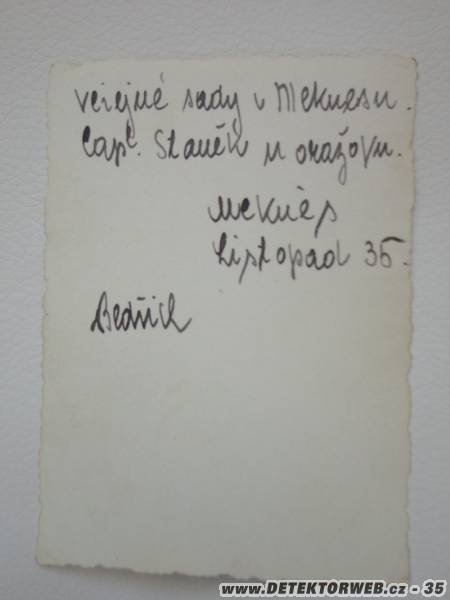 veřejné sady v Meknesu.
Capᵗ. Staněk u oražovn.
Meknès
Listopad 35.
Bedřich
www.DETEKTORWEB.cz - 35